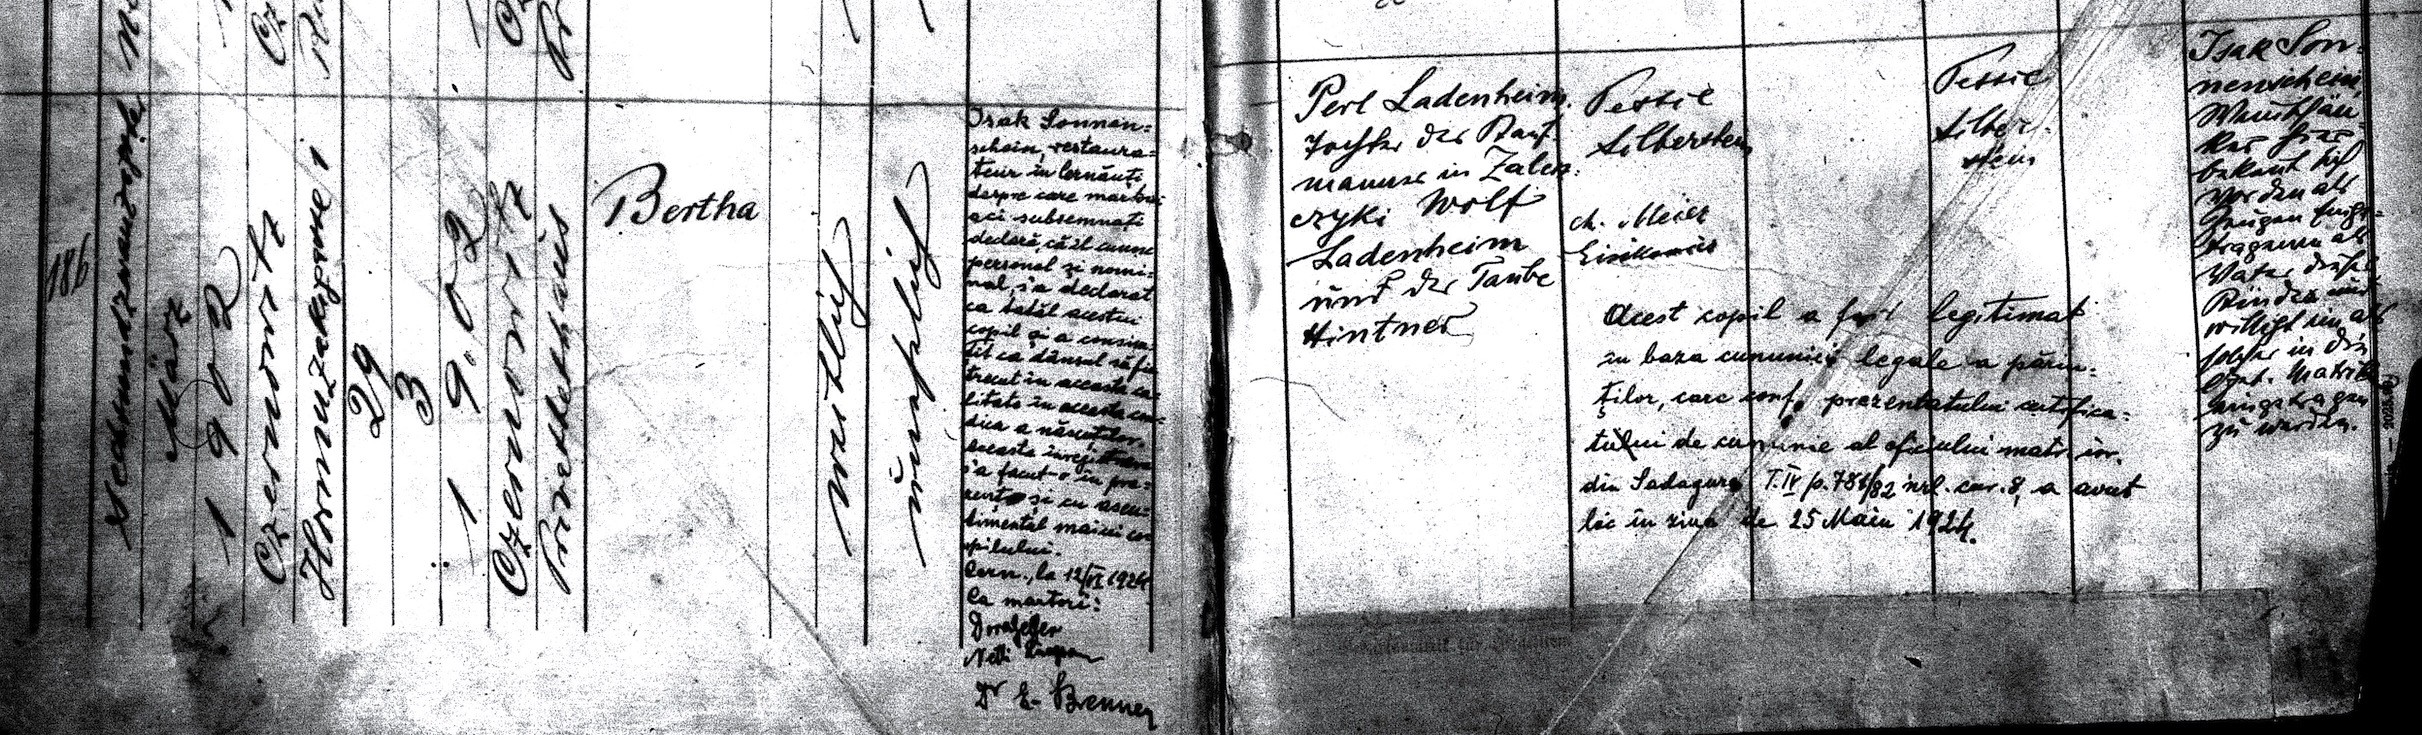 186
März
1902
Czernowitz
Hormuzakigasse 1
29
3
1902
Czernowitz
Bertha
weiblich
unehelich
Isak Sonnen=
schein, restaura=
teur în Cernăuți
despre care martorii
aci subsemnați
declară, că îl cunosc
personal și nomi=
nal, s'a declarat
ca tatăl acestui
copil și a consim=
țit ca dânsul să fie
trecut în aceasta ca=
litate în aceasta con=
dica a născuților.
Aceasta înregistrare
s'a facut-o în pre=
zența și cu asen=
timentul mamei co=
pilului.
Cern., la 12/VI 1924
Ca martori:
Dr E. Brenner
Perl Ladenheim,
Tochter des Kauf=
mannes in Zalesz=
czyki Wolf
Ladenheim
und der Taube
Hintner
Pessie
Silberstein
ch. Meier
Pessie
Silber=
stein
Acest copil a fost legitimat
în baza cununiei legale a părin=
ților, care conf. prezentatului certifica=
tului de cununie al oficiului matr. isr.
din Sadagura T. IV p. 786/82 nrl. cor. 8, a avut
loc în ziua de 25 Maiu 1924.
Isak Son=
nenschein,
bekannt hat
worden als
Zeugen
Vater dieses
Kindes und
willigt ein als
solcher in die
Geb. Matrik
eingetragen
zu werden.